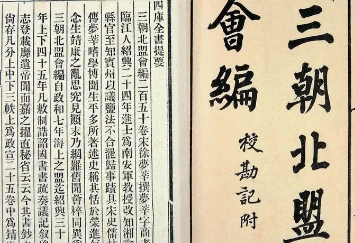 三朝北盟
會編
校勘記附
四庫全書提要
三朝北盟會編二百五十卷宋徐夢莘撰夢莘字商
臨江人紹興二十四年進士爲南安軍教授改知湘
縣官至知賓州以議鹽法不合罷歸事蹟具宋史儒
傳夢莘嗜學博聞生平多所著述史稱其恬於榮進
念生靖康之亂思究見顛末乃網羅舊聞薈稡同異
三朝北盟會編自政和七年海上之盟迄紹興三十
年上下四十五年凡敕制誥詔國書書疏奏議記敍
志登載靡遺帝聞而嘉之擢直祕省云云今其書鈔
尚存凡分上中下三帙上爲政宣二十五卷中爲靖